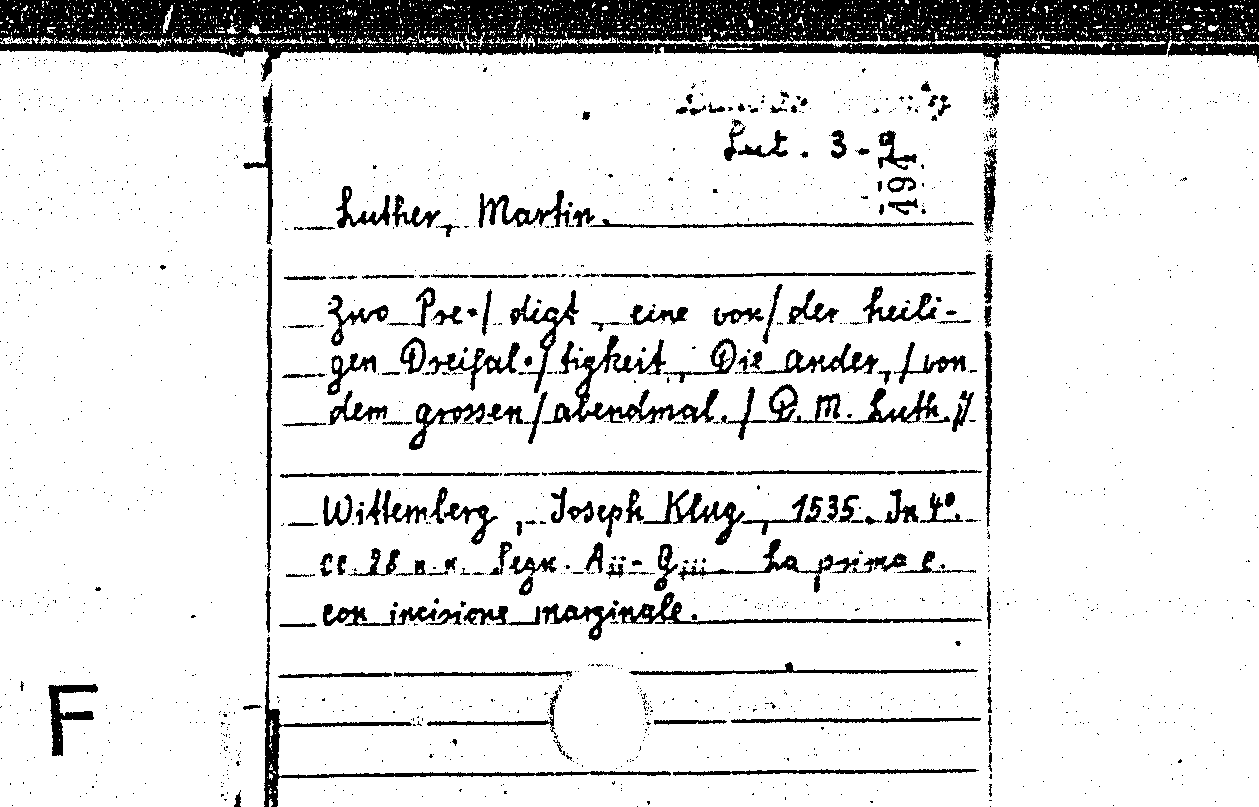 Lut. 3-9
191
Luther, Martin.
Zwo Pre-/ digt, eine von/ der heili-
gen Dreifal-/ tigkeit, Die ander, / von
dem grossen/ abendmal. / D. M. Luth.//
Wittemberg, Joseph Klug, 1535. In 4°.
cc. 28 n.n. Segn. Aii-Giii. La prima c.
con incisione marginale.
F